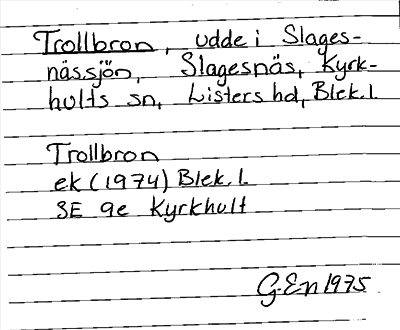 Trollbron, udde i Slages-
nässjön, Slagesnäs, Kyrk-
hults sn, Listers hd, Blek. l.
Trollbron
ek (1974) Blek. l.
3E 9e Kyrkhult
G.En 1975